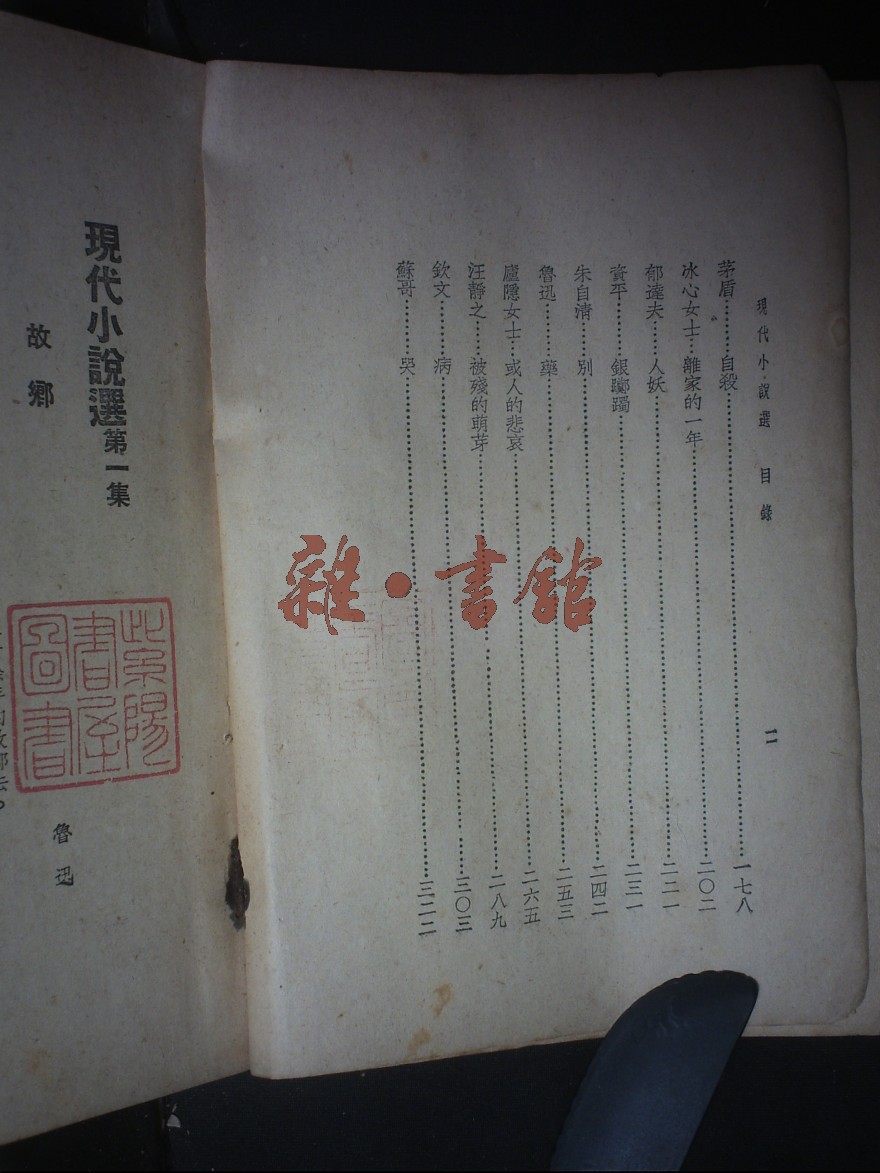 現代小說選 目錄
二
茅盾………自殺………一七八
冰心女士…離家的一年………二〇二
郁達夫……人妖………二二一
資平………銀躑躅………二三一
朱自清……別………二四二
魯迅………藥………二五三
廬隱女士…或人的悲哀………二六五
汪靜之……被殘的萌芽………二八九
欽文………病………三〇三
蘇哥………哭………三二二
現代小說選第一集
故鄉
魯迅
紫陽書屋圖書
雜·書館